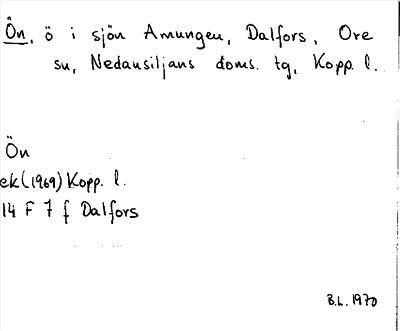 Ön, ö i sjön Amungen, Dalfors, Ore
sn, Nedansiljans doms. tg, Kopp. l.
Ön
ek (1969) Kopp. l.
14 F 7 f Dalfors
B.L. 1970